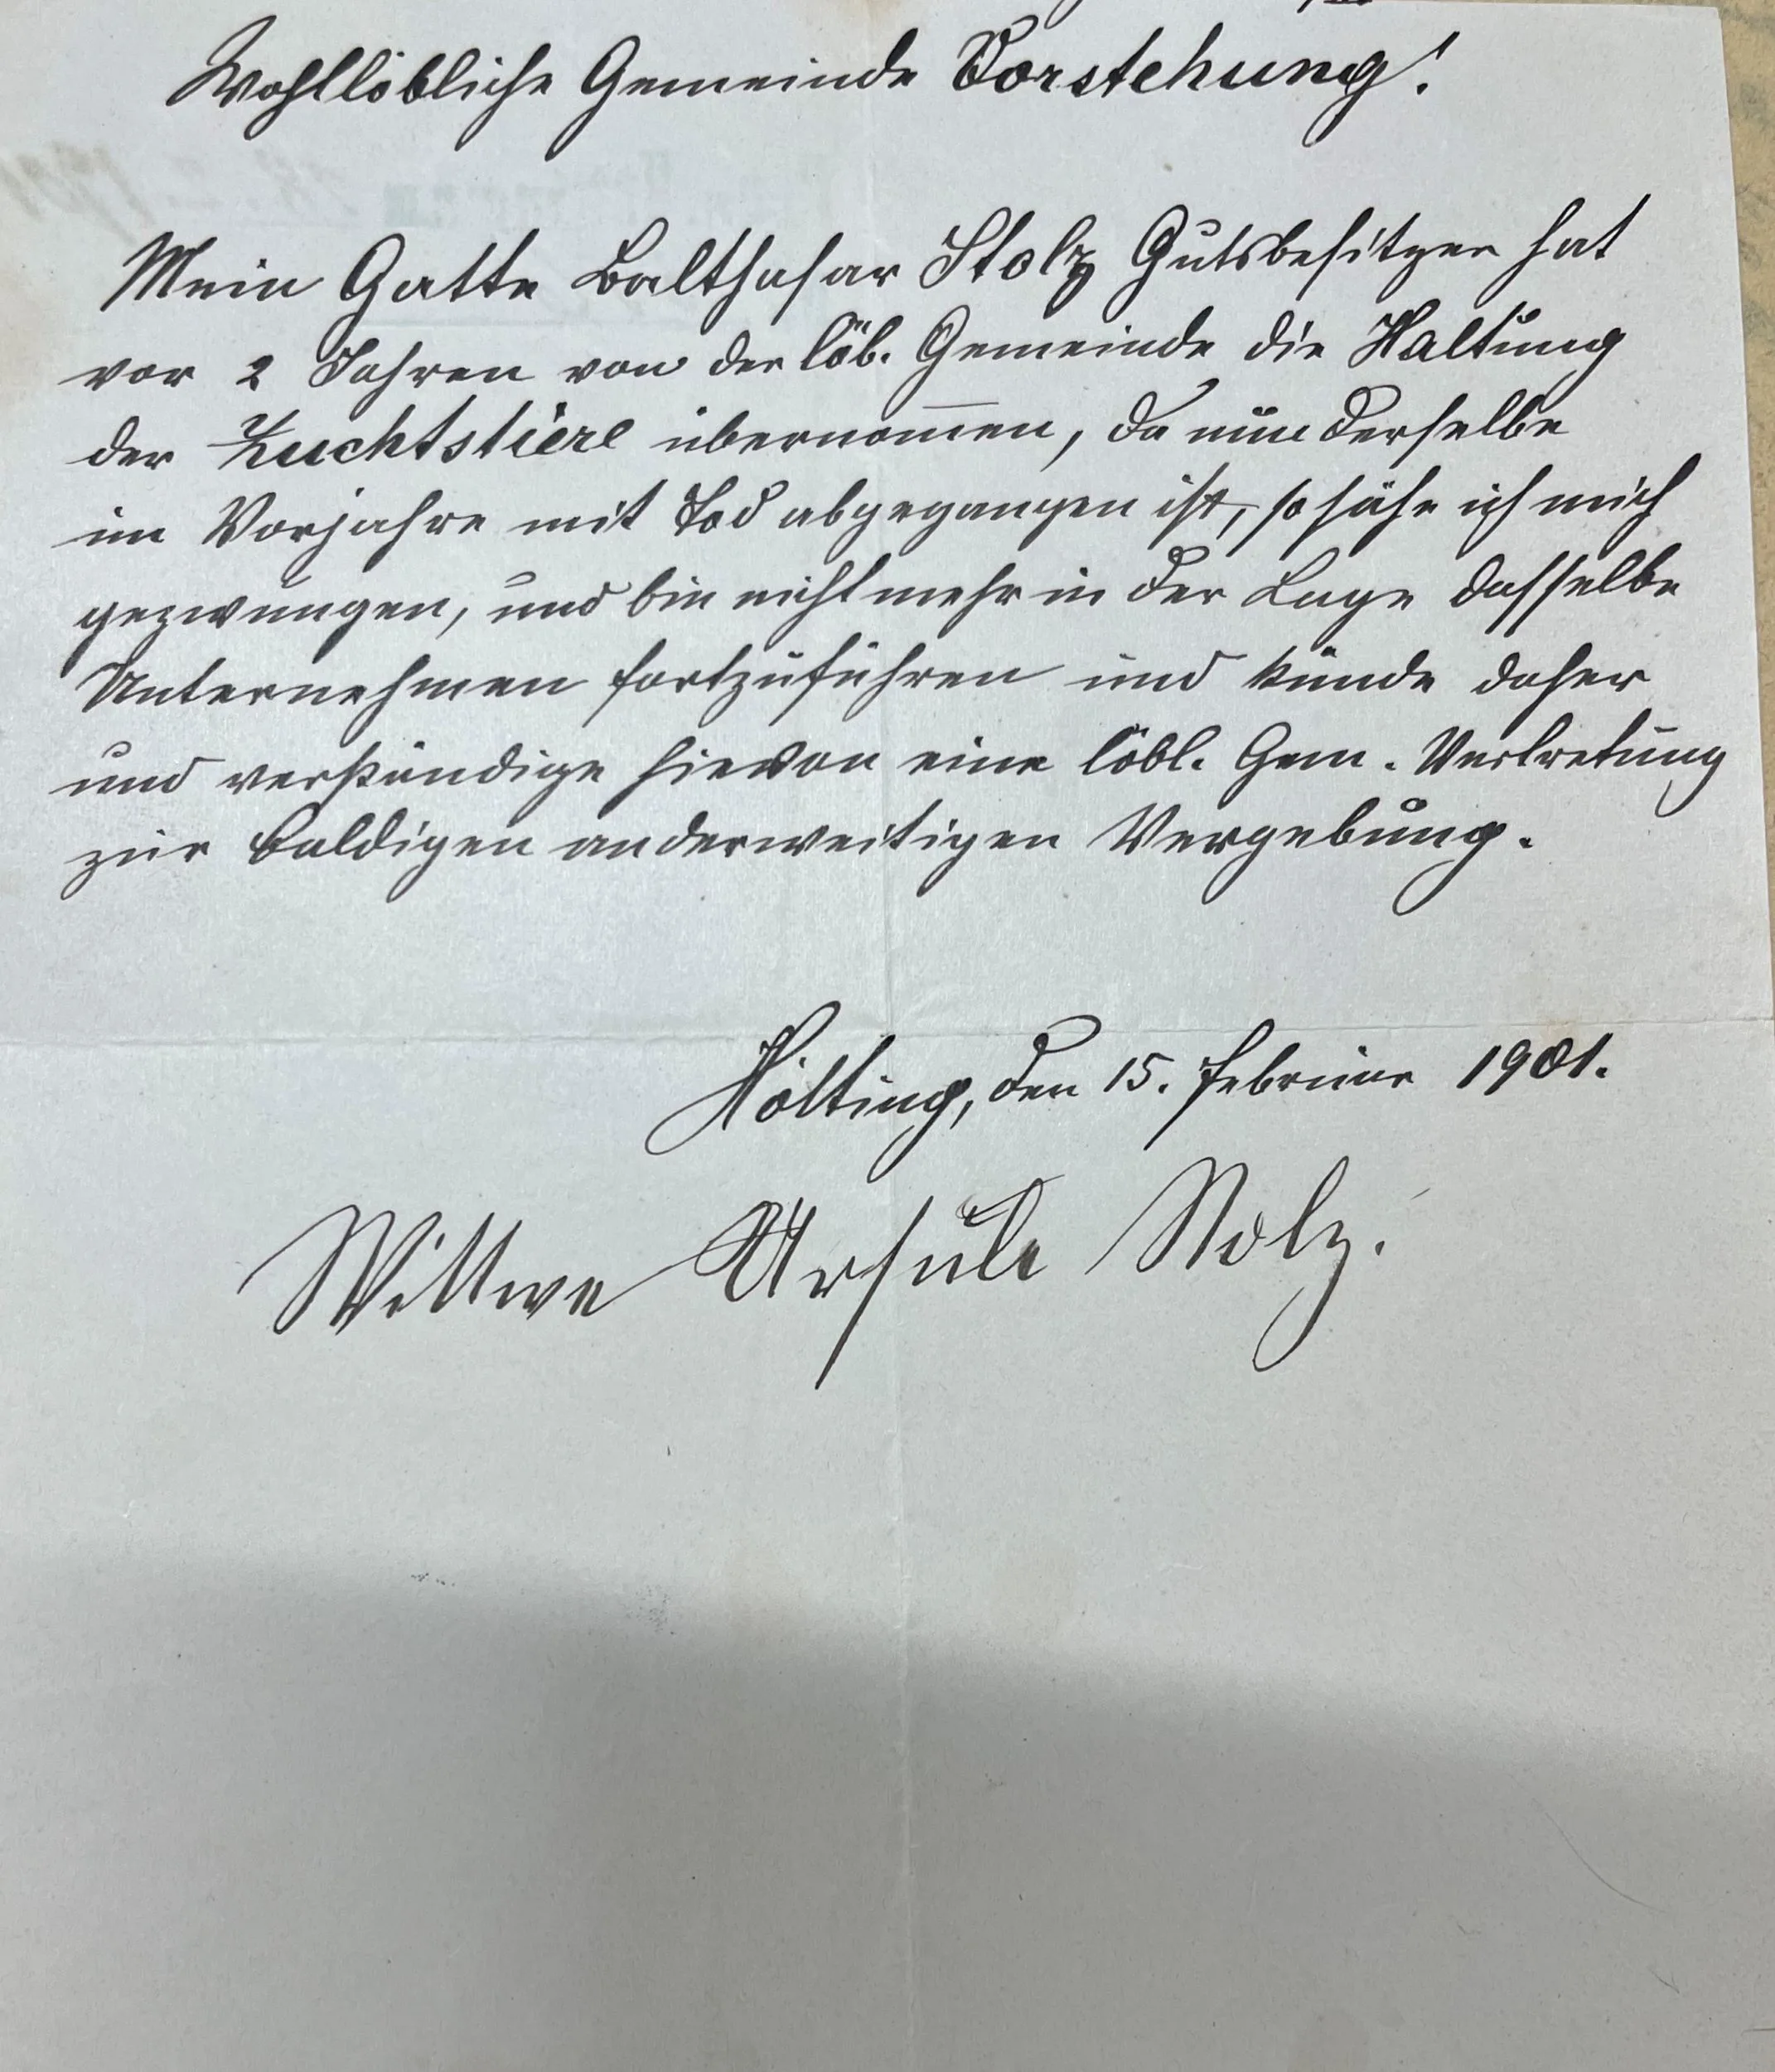 Wohllöbliche Gemeinde Vorstehung!
Mein Gatte Balthasar Stolz Gutsbesitzer hat
vor 2 Jahren von der löb. Gemeinde die Haltung
der Zuchtstiere übernom̅en, da nun derselbe
im Vorjahre mit Tod abgegangen ist, so sähe ich mich
gezwungen, und bin nicht mehr in der Lage dasselbe
Unternehmen fortzuführen und künde daher
und verkündige hievon eine löbl. Gem. Vertretung
zur baldigen anderweitigen Vergebung.
Hötting, den 15. Februar 1901.
Wittwe Ursula Stolz.